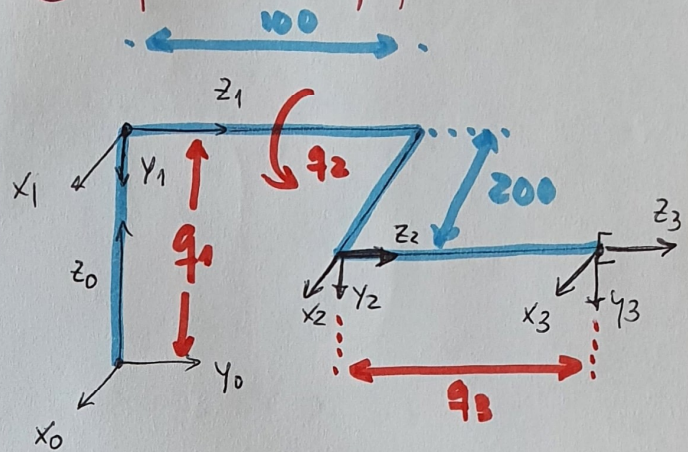 100
Z1
X1
Y1
q2
200
q1
Z0
Z2
Z3
X2
Y2
X3
Y3
Y0
q3
X0